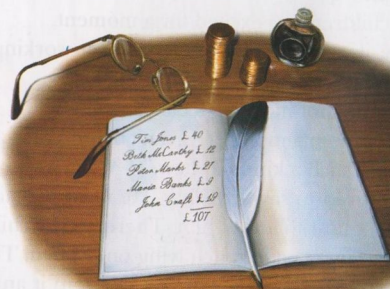 Tim Jones £ 40
Beth McCarthy £ 12
Peter Marks £ 27
Maria Banks £ 9
John Craft £ 19
£ 107